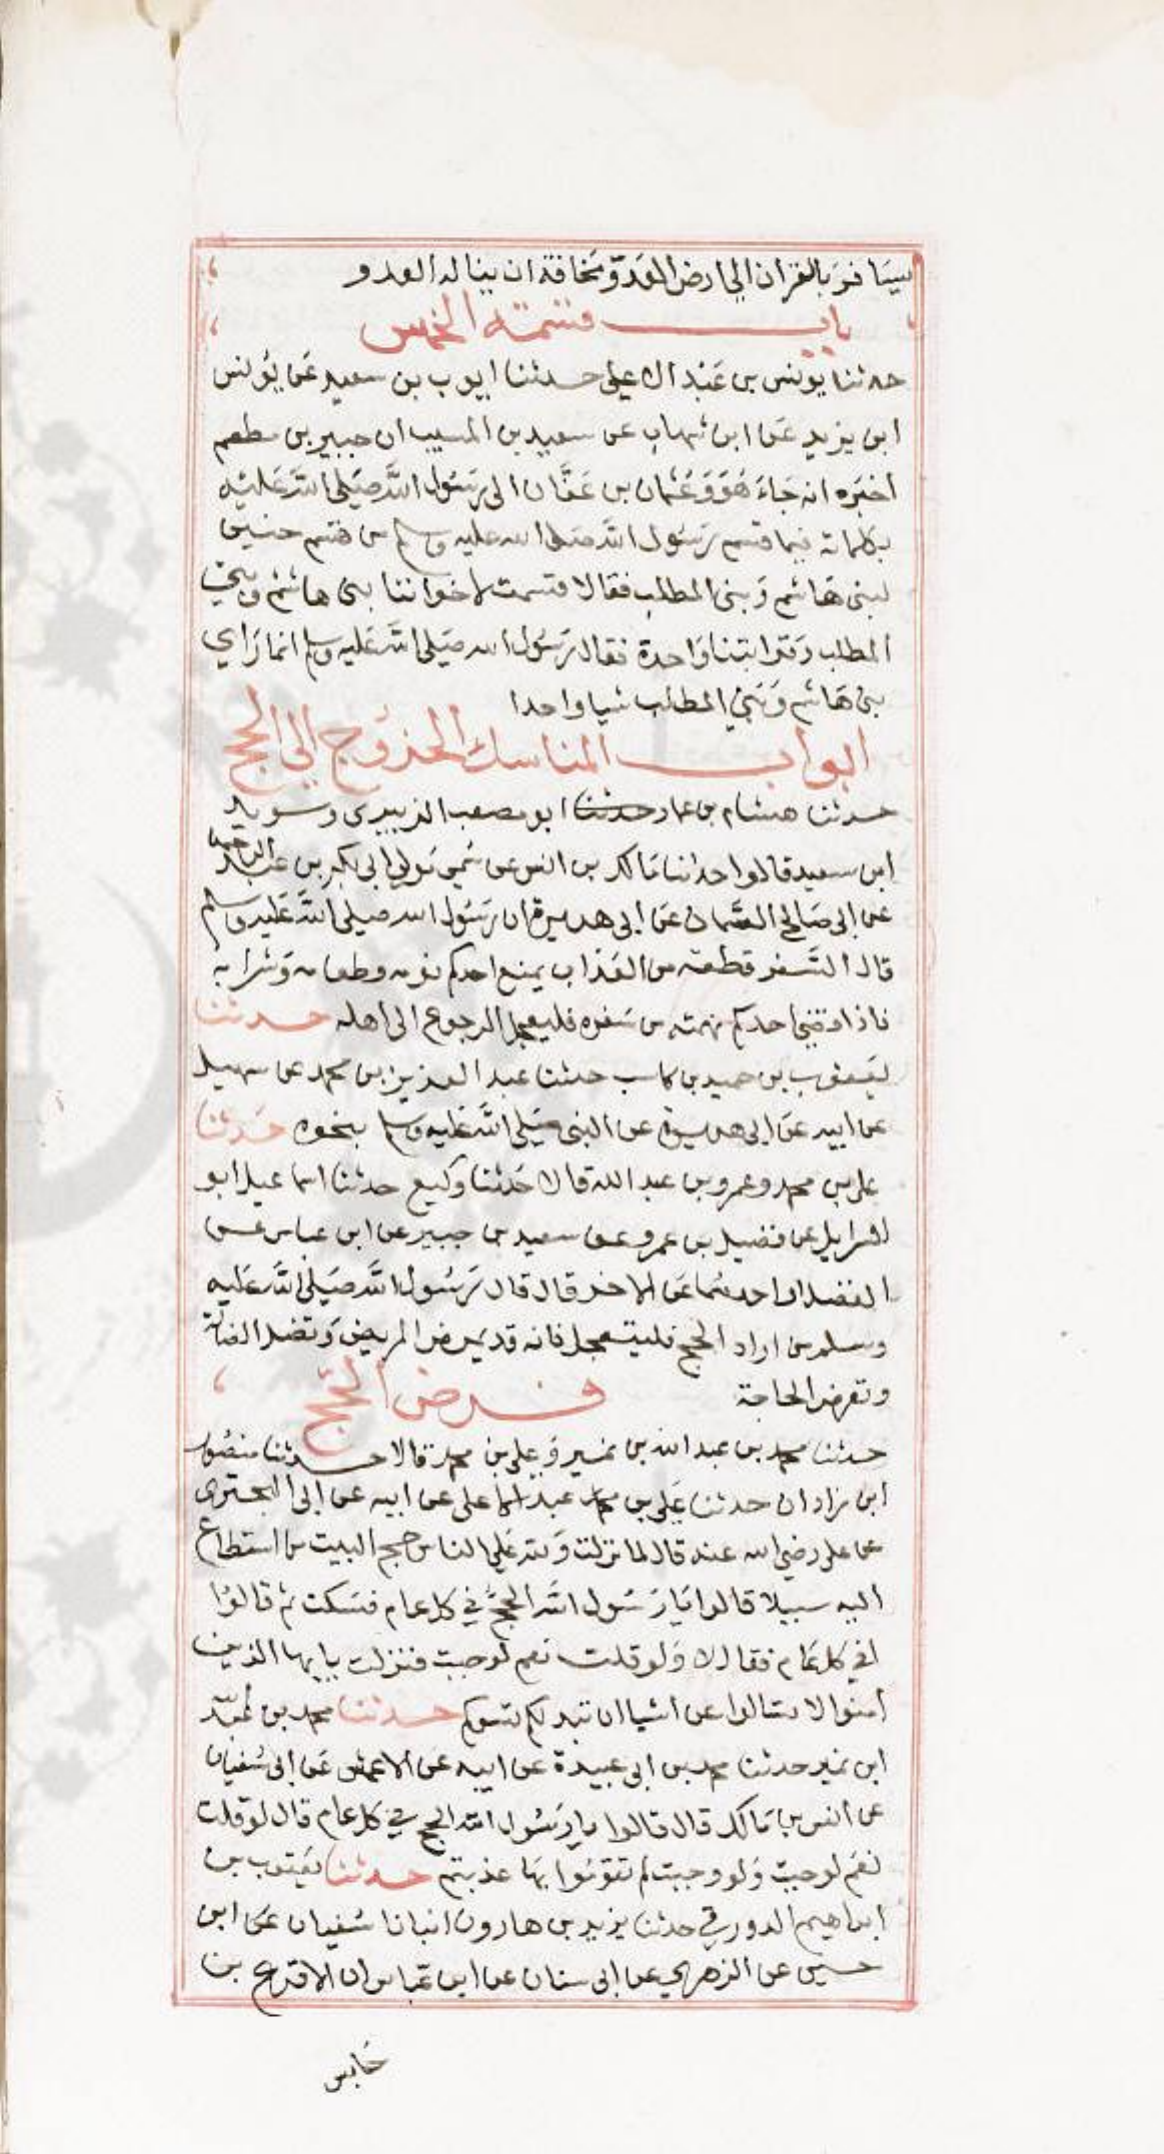 يسافر بالقران الى ارض العدو مخافة ان يناله العدو
باب قسمة الخمس
حدثنا يونس بن عبد الاعلى حدثنا ايوب بن سعيد عن يونس
ابن يزيد عن ابن شهاب عن سعيد بن المسيب ان جبير بن مطعم
اخبره انه جاء هو وعثمان بن عفان الى رسول الله صلى الله عليه
يكلمانه فيما قسم رسول الله صلى الله عليه وسلم من قسم حنين
لبني هاشم وبني المطلب فقالا قسمت لاخواننا بني هاشم وبني
المطلب وقرابتنا واحدة فقال رسول الله صلى الله عليه وسلم انما راي
بني هاشم وبني المطلب شيا واحدا
ابواب المناسك الخروج الى الحج
حدثنا هشام بن عمار حدثنا ابو مصعب الزبيري وسويد
ابن سعيد قالوا حدثنا مالك بن انس عن سمي مولى ابي بكر بن عبد الرحمن
عن ابي صالح السمان عن ابي هريرة ان رسول الله صلى الله عليه وسلم
قال السفر قطعة من العذاب يمنع احدكم نومه وطعامه وشرابه
فاذا قضى احدكم نهمته من سفره فليعجل الرجوع الى اهله حدثنا
يعقوب بن حميد بن كاسب حدثنا عبد العزيز بن محمد عن سهيل
عن ابيه عن ابي هريرة عن النبي صلى الله عليه وسلم بنحوه حدثنا
علي بن محمد وعمرو بن عبد الله قالا حدثنا وكيع حدثنا اسماعيل ابو
اسرايل عن فضيل بن عمرو عن سعيد بن جبير عن ابن عباس عن
الفضل او احدهما عن الاخر قال قال رسول الله صلى الله عليه
وسلم من اراد الحج فليتعجل فانه قد يمرض المريض وتضل الضالة
وتعرض الحاجة فرض الحج
حدثنا محمد بن عبد الله بن نمير وعلي بن محمد قالا حدثنا منصور
ابن زادان حدثنا علي بن عبد الاعلى عن ابيه عن ابي البختري
عن علي رضي الله عنه قال لما نزلت ولله على الناس حج البيت من استطاع
اليه سبيلا قالوا يا رسول الله الحج في كل عام فسكت ثم قالوا
افي كل عام فقال لا ولو قلت نعم لوجبت فنزلت يا ايها الذين
امنوا لا تسالوا عن اشيا ان تبد لكم تسوكم حدثنا محمد بن عبد الله
ابن نمير حدثنا محمد بن ابي عبيدة عن ابيه عن الاعمش عن ابي سفيان
عن انس بن مالك قال قالوا يا رسول الله الحج في كل عام قال لو قلت
نعم لوجبت ولو وجبت لم تقوموا بها عذبتم حدثنا يعقوب بن
ابراهيم الدورقي حدثنا يزيد بن هارون انبانا سفيان عن ابن
حسين عن الزهري عن ابي سنان عن ابن عباس ان الاقرع بن
حابس